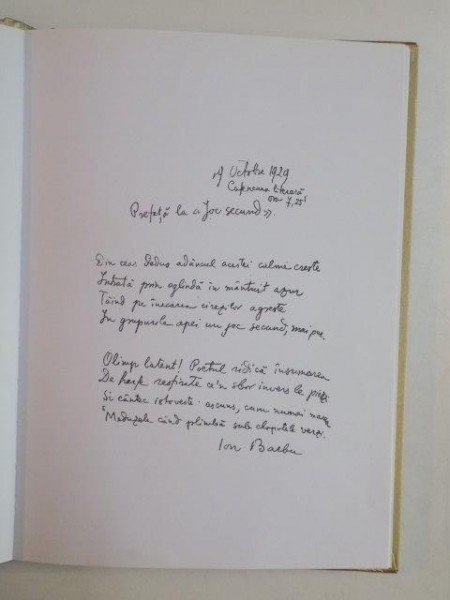 19 Octobre 1929
Capsa
ora 7,25'
Prefață la « Joc secund ».
Din ceas dedus adâncul acestei calme creste
Intrată prin oglindă în mântuit azur
Tăind pe înecarea cirezilor agreste
În grupurile apei un joc secund, mai pur
Olimp latent! Poetul ridică însumarea
De harfe resfirate ce'n sbor invers le pierzi
Si cântec istovește: ascuns, cum numai marea
Meduzele când plimbă sub clopotele verzi.
Ion Barbu